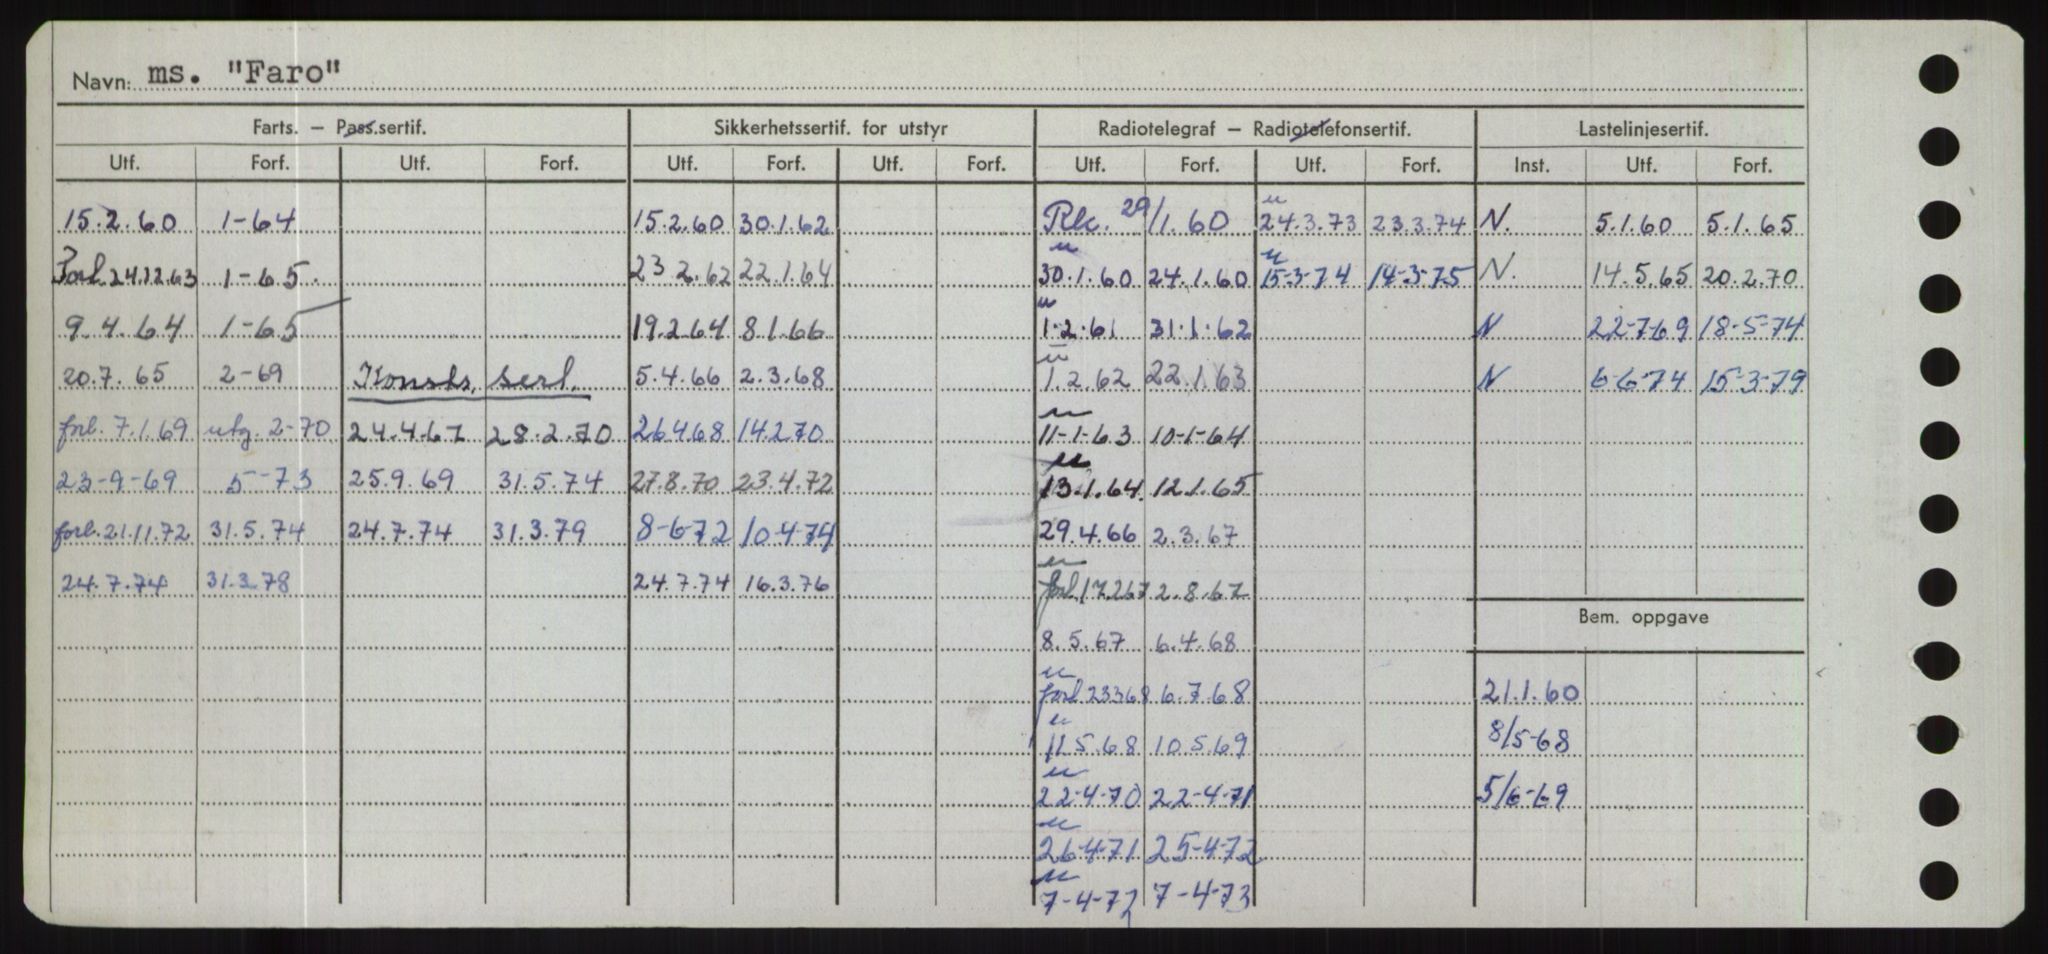 Navn: ms. "Faro"
Farts. – Pass.sertif. Sikkerhetssertif. for utstyr Radiotelegraf – Radiotelefonsertif. Lastelinjesertif.
Utf. Forf. Utf. Forf. Utf. Forf. Utf. Forf. Utf. Forf. Utf. Forf. Inst. Utf. Forf.
15.2.60 1-64 15.2.60 30.1.62 29/1.60 24.3.73 23.3.74 N. 5.1.60 5.1.65
Forl. 24.12.63 1-65. 23 2.62 22.1.64 30.1.60 24.1.60 15-3-74 14-3-75 N. 14.5.65 20.2.70
9.4.64 1-65 19.2.64 8.1.66 1.2.61 31.1.62 N 22-7-69 18-5-74
20.7.65 2-69 Konstr. sert. 5.4.66 2.3.68 1.2.62 22.1.63 N 6-6-74 15-3-79
forl. 7.1.69 utg. 2-70 24.4.67 28.2.70 26.4.68 14.2.70 11-1-63 10-1-64
23-9-69 5-73 25.9.69 31.5.74 27.8.70 23.4.72 13.1.64 12.1.65
forl. 21.11.72 31.5.74 24.7.74 31.3.79 8-6-72 10-4-74 29.4.66 2.3.67
24.7.74 31.3.78 24.7.74 16.3.76 forl. 17.2.67 2.8.67
Bem. oppgave
8.5.67 6.4.68
forl. 23.3.68 6.7.68 21.1.60
11.5.68 10.5.69 8/5-68
22-4-70 22-4-71 5/6-69
26-4-71 25-4-72
7-4-72 7-4-73